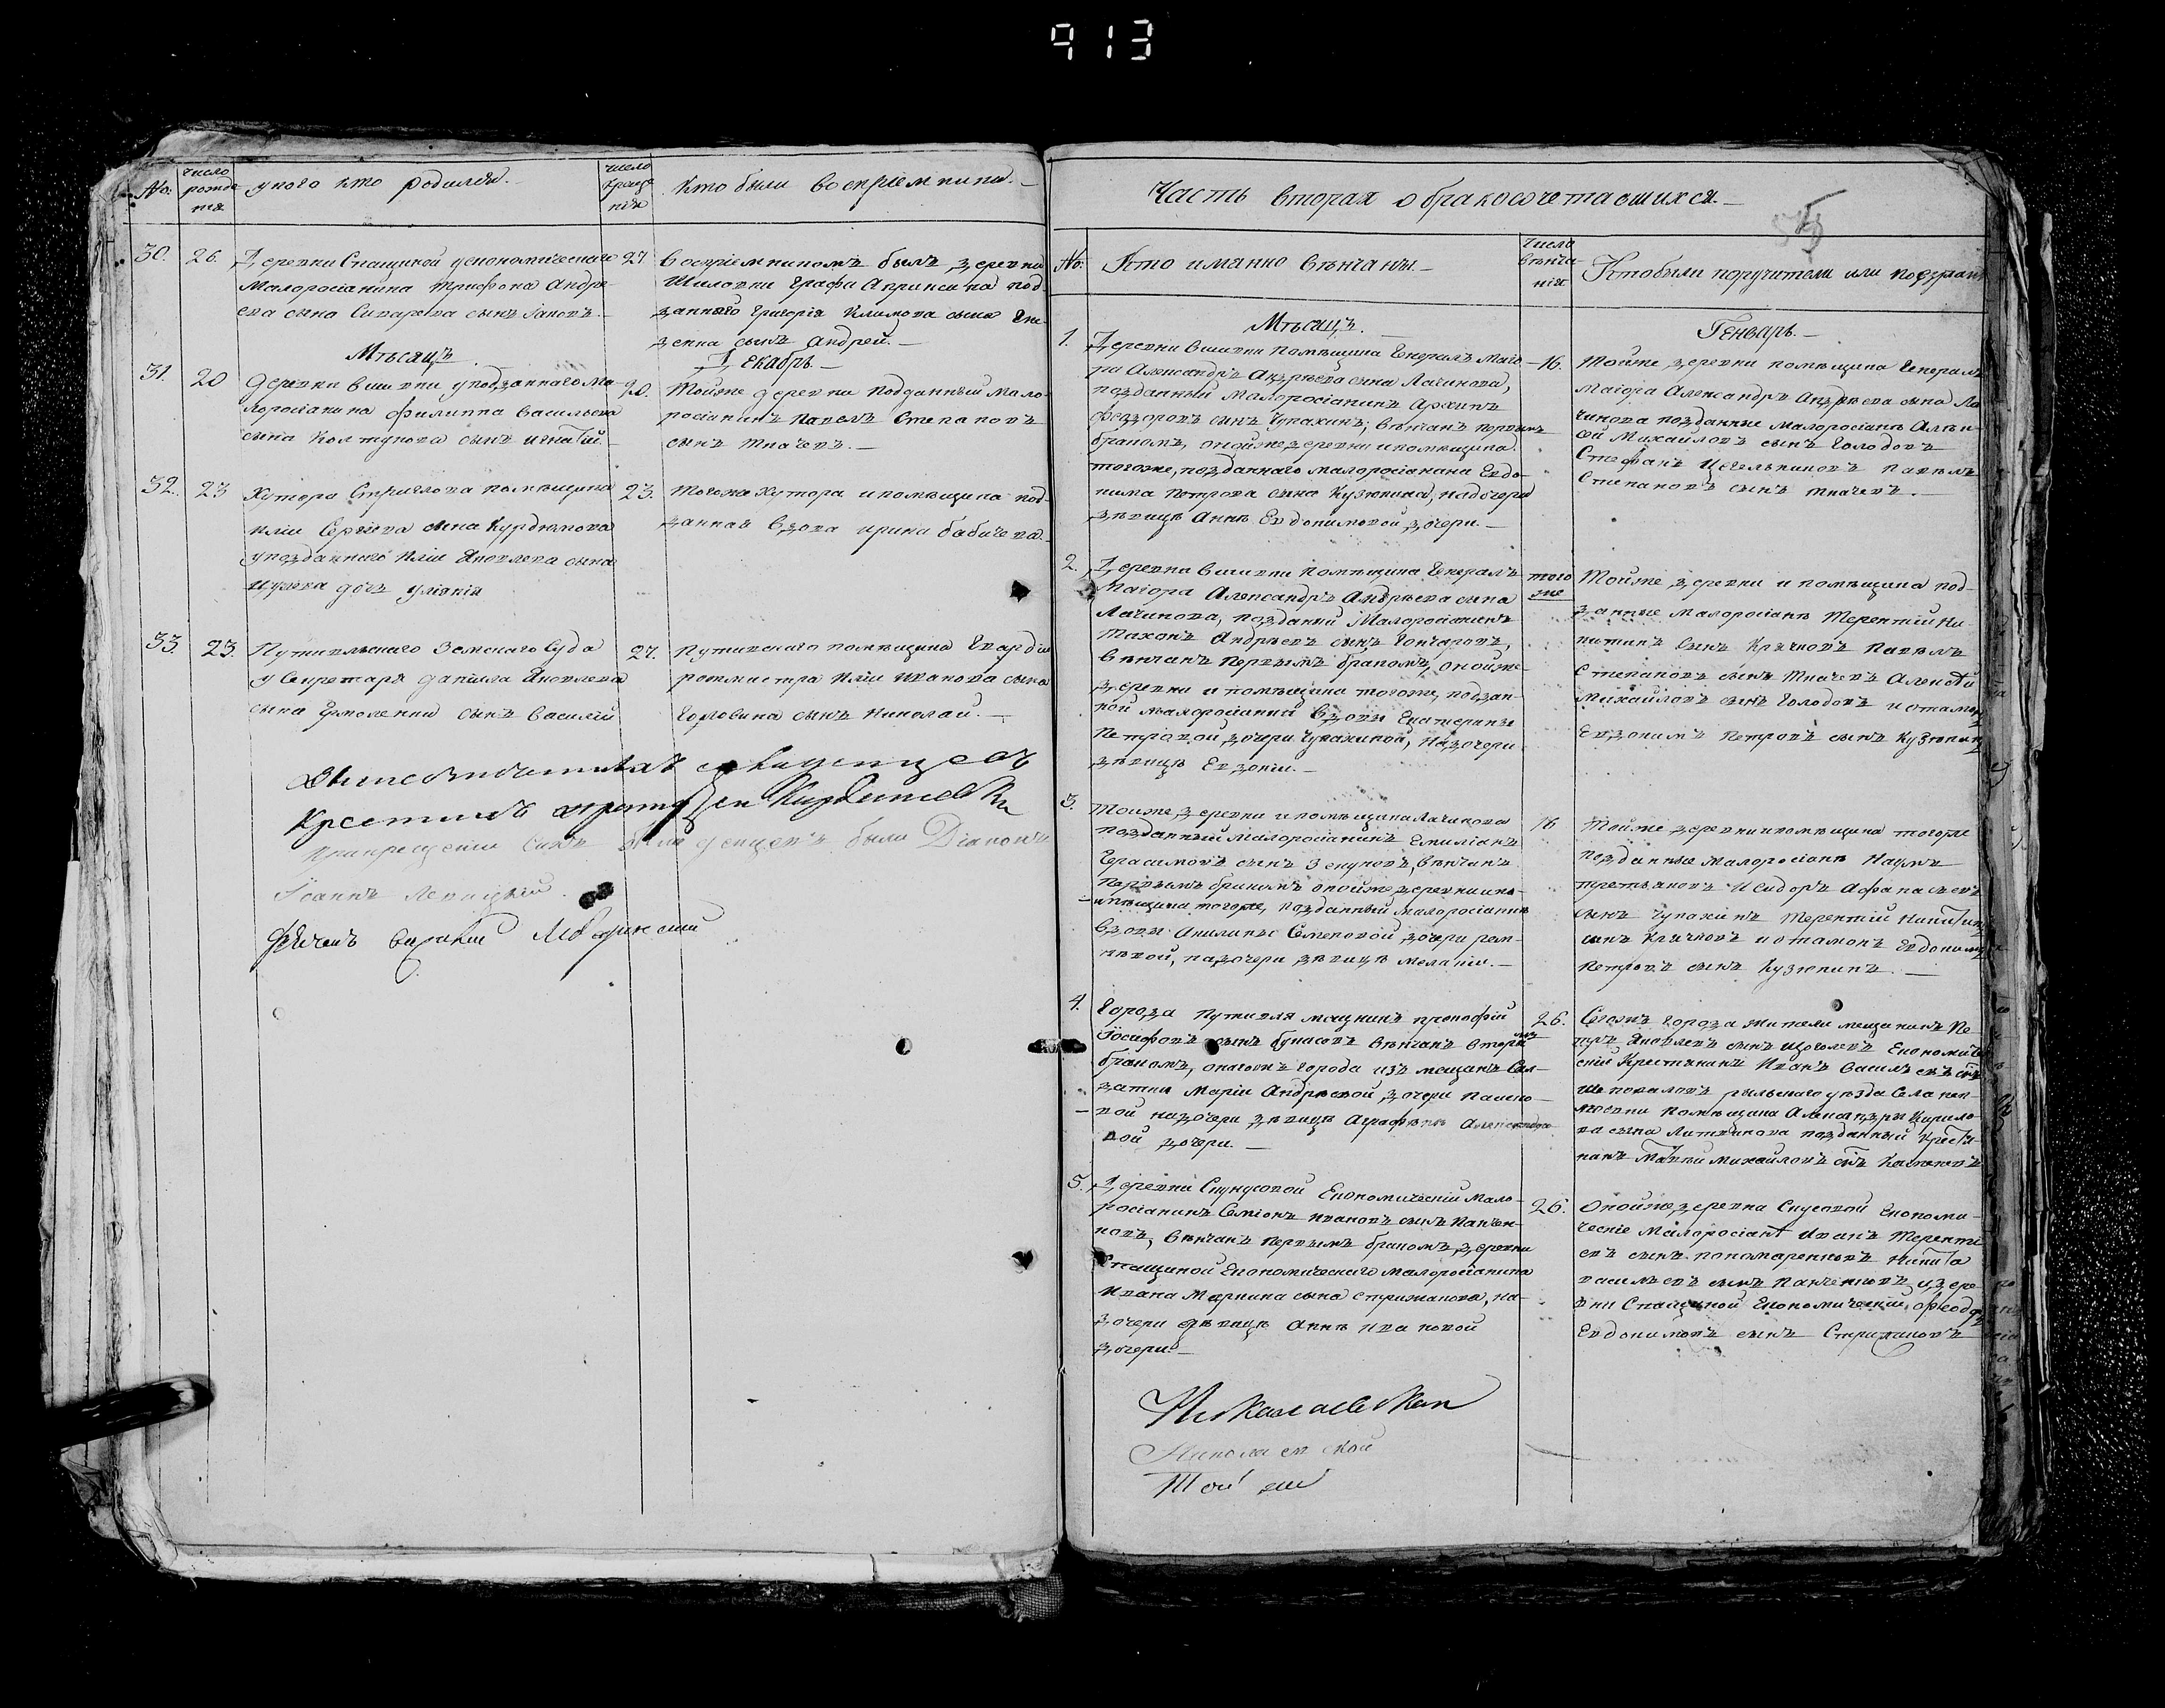 913
No:
число рожде
нія
у кого кто родился.
число
креще
нія
Кто были воспріемники.
30. 26.
Деревни Спащиной у економическаго
Малоросіанина Трифона Андре
ева сына сынъ Іаковъ.
27
воспріемникомъ былъ деревни
графа под
даннаго Григорія Климова сына
сынъ Андрей.
Мѣсяцъ
Декабрь.
31. 20
деревни Вшивки у подданнаго ма
лоросіанина Филиппа Васильева
сына Колтунова сынъ Игнатій.
20.
Тойже деревни подданный мало
росіанинъ Павелъ Степановъ
сынъ Ткачевъ.
32. 23
Хутора Стриглова помѣщика
Иліи Сергѣева сына Курдюмова
у подданнаго Иліи Яковлева сына
дочь Уліанія
23.
Тогоже хутора и помѣщика под
данная вдова Ирина Бабичева.
33. 23.
Путивльскаго Земскаго Суда
у Секретаря Даніила Яковлева
сына Ермоленки сынъ Василій
27.
Путивскаго помѣщика Гвардіи
ротмистра Иліи Иванова сына
Головина сынъ Николай.
младенцевъ
Крестилъ
При крещеніи сихъ младенцевъ были Діаконъ
Іоаннъ Левицкій.
Часть вторая о бракосочетавшихся.
No:
Кто иманно вѣнчаны.
Число
вѣнча
нія
Кто были поручители или
Мѣсяцъ.
Генварь.
1.
Деревни Вшивки помѣщика Генералъ Маіо
ра Александръ Андрѣева сына Лачинова,
подданный Малоросіанинъ Архипъ
Феодоровъ сынъ Чупахинъ, вѣнчанъ первымъ
бракомъ, онойже деревни и помѣщика
тогоже, подданнаго малоросіанана Евдо
кима Петрова сына Кузюкина, на дочери
дѣвицѣ Аннѣ Евдокимовой дочери.
16.
Тойже деревни помѣщика Генералъ
Маіора Александръ Андрѣева сына Ла
чинова подданные Малоросіанѣ Алек
сѣй Михайловъ сынъ Голодовъ
Стефанъ Цегельниковъ Павелъ
Степановъ сынъ Ткачевъ.
2.
Деревни Вшивки помѣщика Генералъ
Маіора Александръ Андрѣева сына
Лачинова, подданый Малоросіанинъ
Андрѣевъ сынъ Гончаровъ,
вѣнчанъ первымъ бракомъ, онойже
деревни и помѣщика тогоже, поддан
ной малоросіанки вдовы Екатерины
Петровой дочери Чупахиной, на дочери
дѣвицѣ Евдокіи.
того
же
Тойже деревни и помѣщика под
данные малоросіанѣ Терентій Ни
китинъ сынъ Кличковъ Павелъ
Степановъ сынъ Ткачевъ Алексѣй
Михайловъ сынъ Голодовъ и отаманъ
Евдокимъ Петровъ сынъ Кузюкинъ
3.
Тойже деревни и помѣщика Лачинова
подданный Малоросіанинъ Емиліанъ
Герасимовъ сынъ Зенуковъ, вѣнчанъ
первымъ бракомъ онойже деревни и по
мѣщика тогоже, подданный малоросіанки
вдовы Акилины Семеновой дочери
на дочери дѣвицѣ Меланіи.
18
Тойже деревни и помѣщика тогоже
подданные Малоросіанѣ Наумъ
Третьяковъ Исидоръ Афанасьевъ
сынъ Чупахинъ Терентій Никитинъ
сынъ Кличковъ и отамонъ Евдокимъ
Петровъ сынъ Кузюкинъ.
4.
Города Путивля мещнинъ Прокофій
Іосифовъ сынъ Бунасовъ вѣнчанъ вторымъ
бракомъ, онагожъ города изъ мещанъ Сол
датки Маріи Андрѣевой дочери
вой на дочери дѣвицѣ Аграфѣнѣ Александро
вой дочери.
26.
Сегожъ города жители мещанинъ Пе
тръ Яковлевъ сынъ Щоголевъ Економиче
скій Крестьянинъ Иванъ Васильевъ сынъ
Шеповаловъ Рыльскаго уѣзда Села
помѣщика Александры Кирило
ва сына Литвинова подданный Крестья
нинъ Матвій Михайловъ сынъ
5.
Деревни Скунусовой Економическій Мало
росіанинъ Семіонъ Ивановъ сынъ Панчен
ковъ, вѣнчанъ первымъ бракомъ, деревни
Спащиной Економическаго Малоросіанина
Ивана Маркина сына Стрижакова, на
дочери дѣвицѣ Аннѣ Ивановой
дочери.
26.
Онойже деревни Скусовой Економи
ческіе Малоросіанѣ Иванъ Теренти
евъ сынъ Пономаренковъ Никита
Васильевъ сынъ Панченковъ и дере
вни Спащиной Економическій Феодоръ
Евдокимовъ сынъ Стрижаковъ
Николаевской
Той же